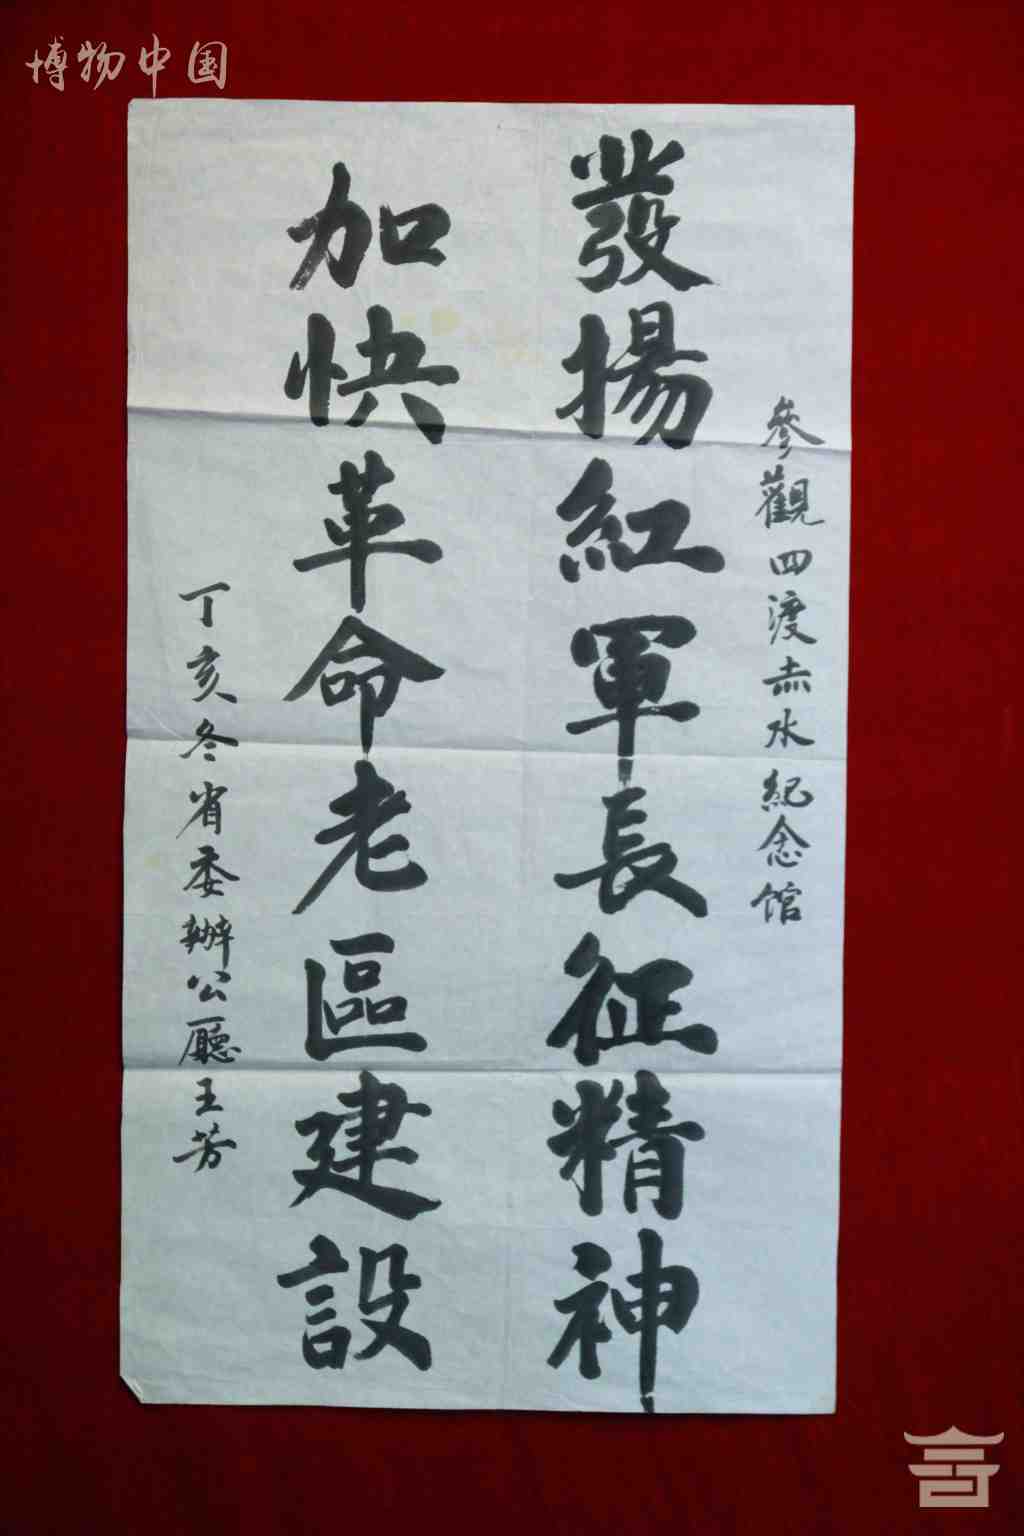 博物中国
參觀四渡赤水紀念馆
發揚紅軍長征精神
加快革命老區建設
丁亥冬省委辦公廳王芳